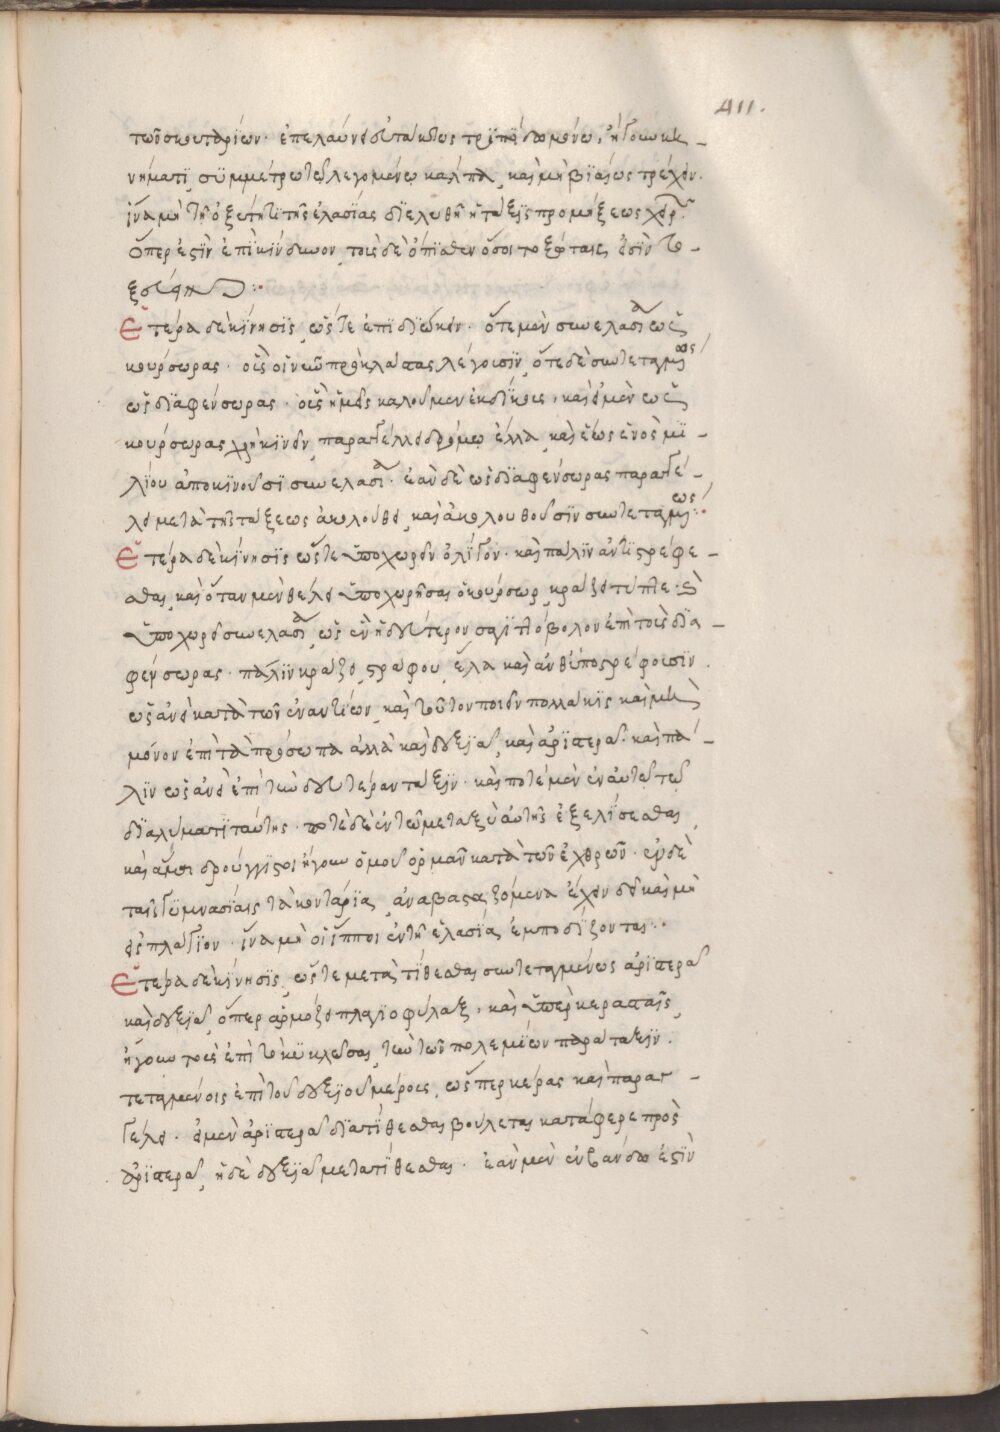 411.
τῶν σκουταρίων· ἐπελαύνει εὐτάκτως τριπηδωμένω, ἤγουν κι-
νήματι συμμέτρω τῶ λεγομένω κάλπα, καὶ μὴ βιαίως τρέχειν·
ἵνα μὴ τῆ ὀξύτητι τῆς ἐλασίας διελυθῆ ἡ τάξις πρὸ μίξεως χειρῶν·
ὅπερ ἐστὶν ἐπικίνδυνον, τοῖς δὲ ὄπισθεν ὅσοι τοξόται εἰσὶν το-
ξεύειν:·
Ἑτέρα δὲ κίνησις, ὥστε ἐπιδιώκειν· ὅτε μὲν σὺν ἐλασία ὡς
κούρσωρας· οὓς οἱ νῦν προκλάστας λέγουσιν, ὅτε δὲ συντεταγμένως
ὡς διαφένσωρας· οὓς ἡμεῖς καλοῦμεν ἐκδίκους· καὶ εἰ μὲν ὡς
κούρσωρας χρὴ κινεῖν, παραγγέλλει δρόμω ἔλα, καὶ ἕως ἑνὸς μι-
λίου ἀποκινοῦσι σὺν ἐλασία· ἐὰν δὲ ὡς διαφένσωρας παραγγέ-
λει μετὰ τῆς τάξεως ἀκολούθει, καὶ ἀκολουθοῦσιν συντεταγμένως:·
Ἑτέρα δὲ κίνησις ὥστε ὑποχωρεῖν ὀλίγον· καὶ πάλιν ἀντιστρέφε-
σθαι, καὶ ὅταν μὲν θέλει ὑποχωρῆσαι ὁ κούρσωρ, κράζει
ὑποχωρεῖ σὺν ἐλασία, ὡς ἓν ἢ δεύτερον σαγιττόβολον ἐπὶ τοὺς δια-
φένσωρας· πάλιν κράζει, στράφου, ἔλα καὶ ἀνθυποστρέφουσιν
ὡς ἀνεὶ κατὰ τῶν ἐναντίων, καὶ τοῦτον ποιεῖν πολλάκις καὶ μὴ
μόνον ἐπὶ τὰ πρόσωπα ἀλλὰ καὶ δεξιὰ, καὶ ἀριστερὰ· καὶ πά-
λιν ὡς ἀνεὶ ἐπὶ τὴν δευτέραν τάξιν· καὶ ποτὲ μὲν ἐν αὐτῶ τῶ
διαλείματι ταύτης· ποτὲ δὲ ἐν τῶ μεταξὺ αὐτῆς ἐξελίσεσθαι
καὶ ἅμα δρουγγιστοὶ ἤγουν ὁμοῦ ὁρμᾶν κατὰ τῶν ἐχθρῶν· ἐν δὲ
ταῖς γυμνασίαις τὰ κοντάρια, ἀναβασταζόμενα ἔχειν δεῖ καὶ μὴ
εἰς πλάγιον· ἵνα μὴ οἱ ἵπποι ἐν τῆ ἐλασία ἐμποδίζονται:·
Ἑτέρα δὲ κίνησις, ὥστε μετατίθεσθαι συντεταγμένως ἀριστερὰ
καὶ δεξιὰ, ὅπερ ἁρμόζει πλαγιοφύλαξι, καὶ ὑπερκερασταῖς,
ἤγουν τοῖς ἐπὶ τὸ κυκλῶσαι τὴν τῶν πολεμίων παράταξιν·
τεταγμένοις ἐπὶ τοῦ δεξιοῦ μέρους, ὥσπερ κέρας καὶ παραγ-
γέλει· εἰ μὲν ἀριστερὰ διατίθεσθαι βούλεται κατάφερε πρὸς
ἀριστερὰ, ἢ δὲ δεξιὰ μετατίθεσθαι· ἐὰν μὲν ἓν βάνδον ἐστὶν